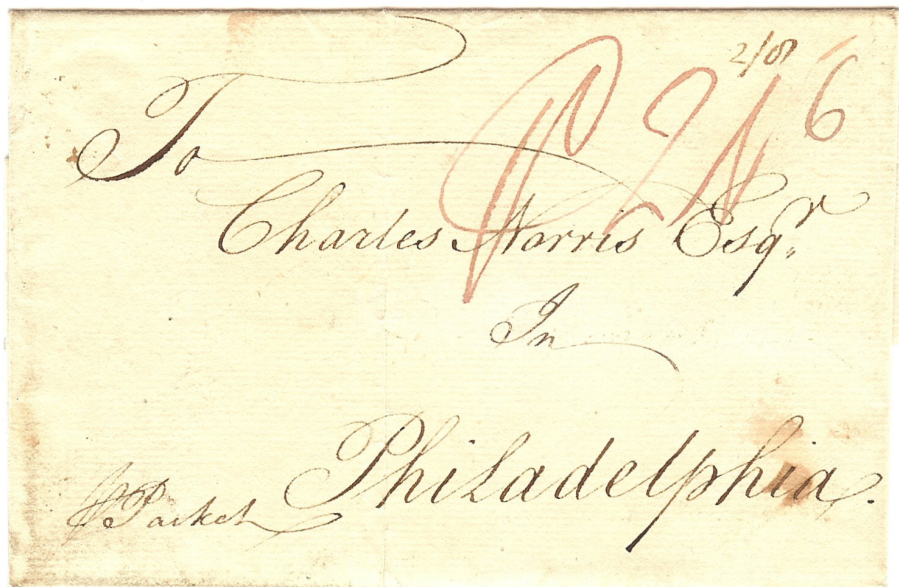 2/8
6
To
Charles Norris Esqr
In
Philadelphia.
Packet